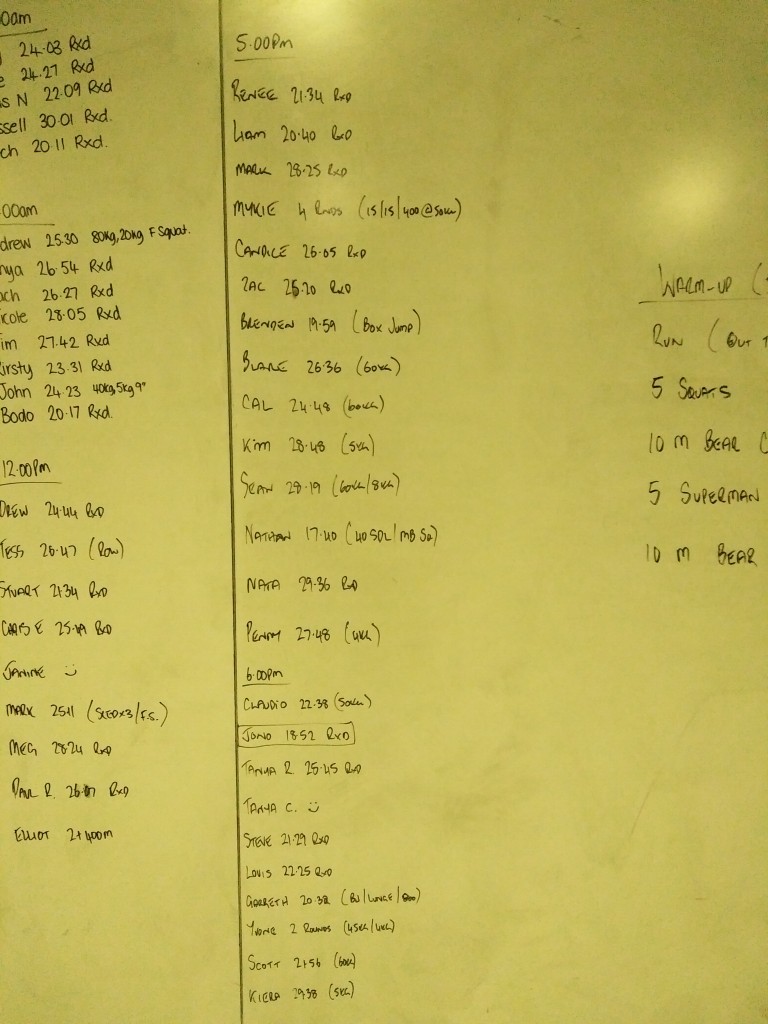 00am
24.03 Rxd
e 24.27 Rxd
s N 22.09 Rxd
ssell 30.01 Rxd.
ch 20.11 Rxd.
:00am
drew 25.30 80kg, 20kg F Squat.
nya 26.54 Rxd
ach 26.27 Rxd
icole 28.05 Rxd
im 27.42 Rxd
irsty 23.31 Rxd
John 24.23 40kg, 5kg 9"
Bodo 20.17 Rxd.
12.00pm
DREW 24.44 RXD
TESS 26.47 (ROW)
STUART 21.34 RXD
CHRIS E 25.19 RXD
JANINE
MARK 25.11 (SLEDx3/F.S.)
MEG 28.24 RXD
PAUL R. RXD
ELLIOT 2+400m
5.00pm
RENEE 21.34 RXD
LIAM 20.40 RXD
MARK 28.25 RXD
MYKIE 4 RNDS (15/15/400@50KG)
CANDICE 26.05 RXD
ZAC 25.20 RXD
BRENDEN 19.59 (BOX JUMP)
BLAKE 26.36 (60KG)
CAL 24.48 (60KG)
KIM 28.48 (5KG)
SEAN 28.19 (60KG/8KG)
NATHAN 17.40 (40SDL/MB SQ)
NATA 29.36 RXD
PENNY 27.48 (4KG)
6.00pm
CLAUDIO 22.38 (50KG)
JONO 18.52 RXD
TANYA R 25.45 RXD
TANYA C.
STEVE 21.29 RXD
LOUIS 22.25 RXD
GARRETH 20.38 (BU/LUNGE/
YVONE 2 ROUNDS (45KG/4KG)
SCOTT 21.56 (60KG)
KIERA 29.38 (5KG)
WARM-UP (
RUN (OUT
5 SQUATS
10 M BEAR
5 SUPERMAN
10 M BEAR